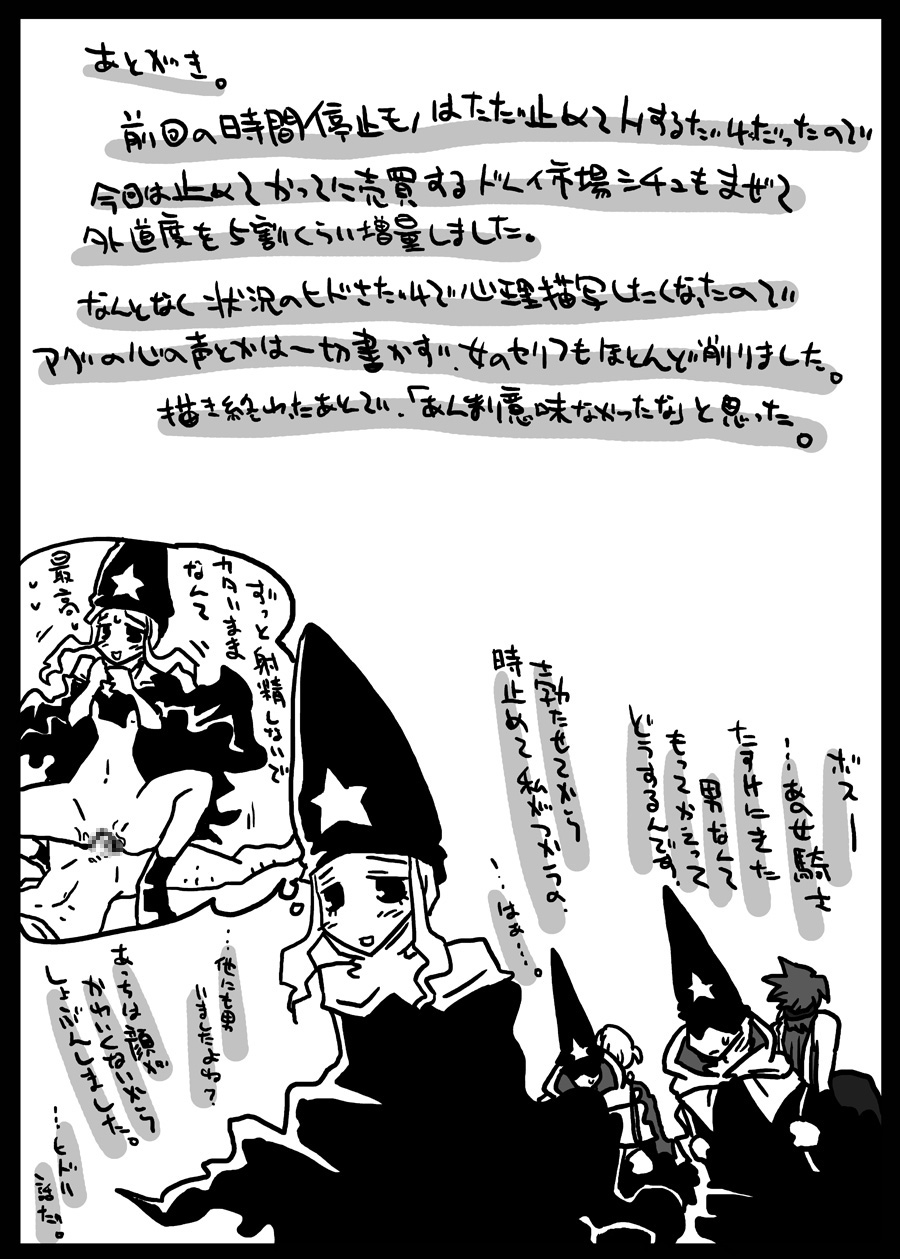 あとがき。
前回の時間停止モノはただ止めてHするだけだったので
今回は止めてかってに売買するドレイ市場シチュもまぜて
外道度を5割くらい増量しました。
なんとなく状況のヒドさだけで心理描写したくなったので
アグの心の声とかは一切書かず、女のセリフもほとんど削りました。
描き終わったあとで、「あんま意味なかったな」と思った。
ボスー
…あの女騎士
たすけにきた
男なんて
もってかえって
どうするんです。
勃たせてから
時止めて私がつかうの。
…はぁ…。
ずっと射精しないで
カタいまま
なんて
最高
…他にも男
いましたよねっ?
あっちは顔が
かわいくないから
しょぶんしました。
…ヒドい
話だ。